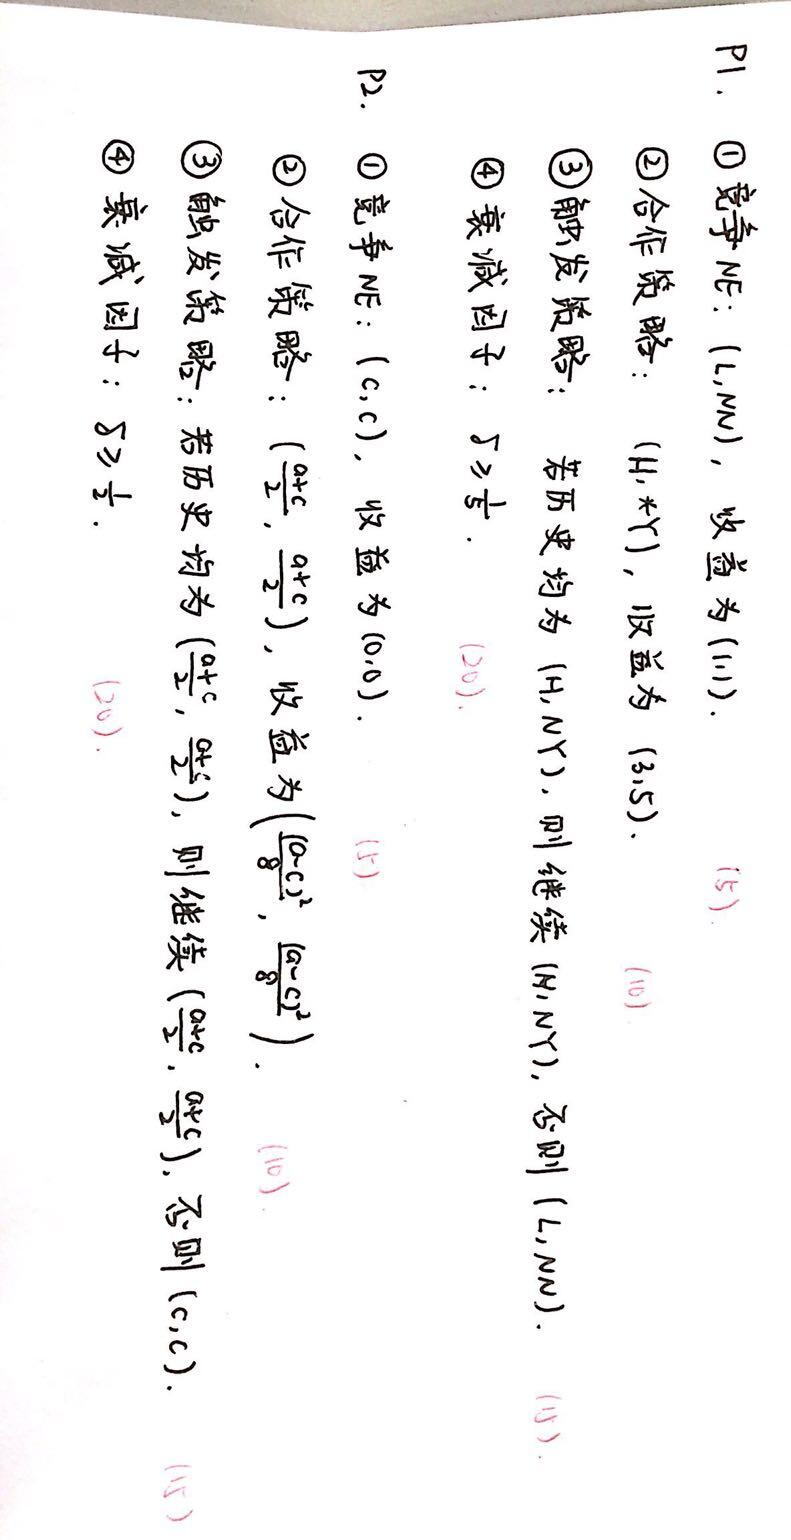 P1. ① 竞争NE: (L,NN), 收益为(1,1). (5).
② 合作策略: (H,*Y), 收益为 (3,5). (10)
③ 触发策略: 若历史均为 (H,NY), 则继续 (H,NY), 否则 (L,NN). (15).
④ 衰减因子: δ ≥ 1/5. (20).
P2. ① 竞争NE: (c,c), 收益为(0,0). (5)
② 合作策略: (a+c/2, a+c/2), 收益为((a-c)²/8, (a-c)²/8). (10).
③ 触发策略: 若历史均为 (a+c/2, a+c/2), 则继续 (a+c/2, a+c/2), 否则 (c,c). (15)
④ 衰减因子: δ ≥ 1/2. (20).